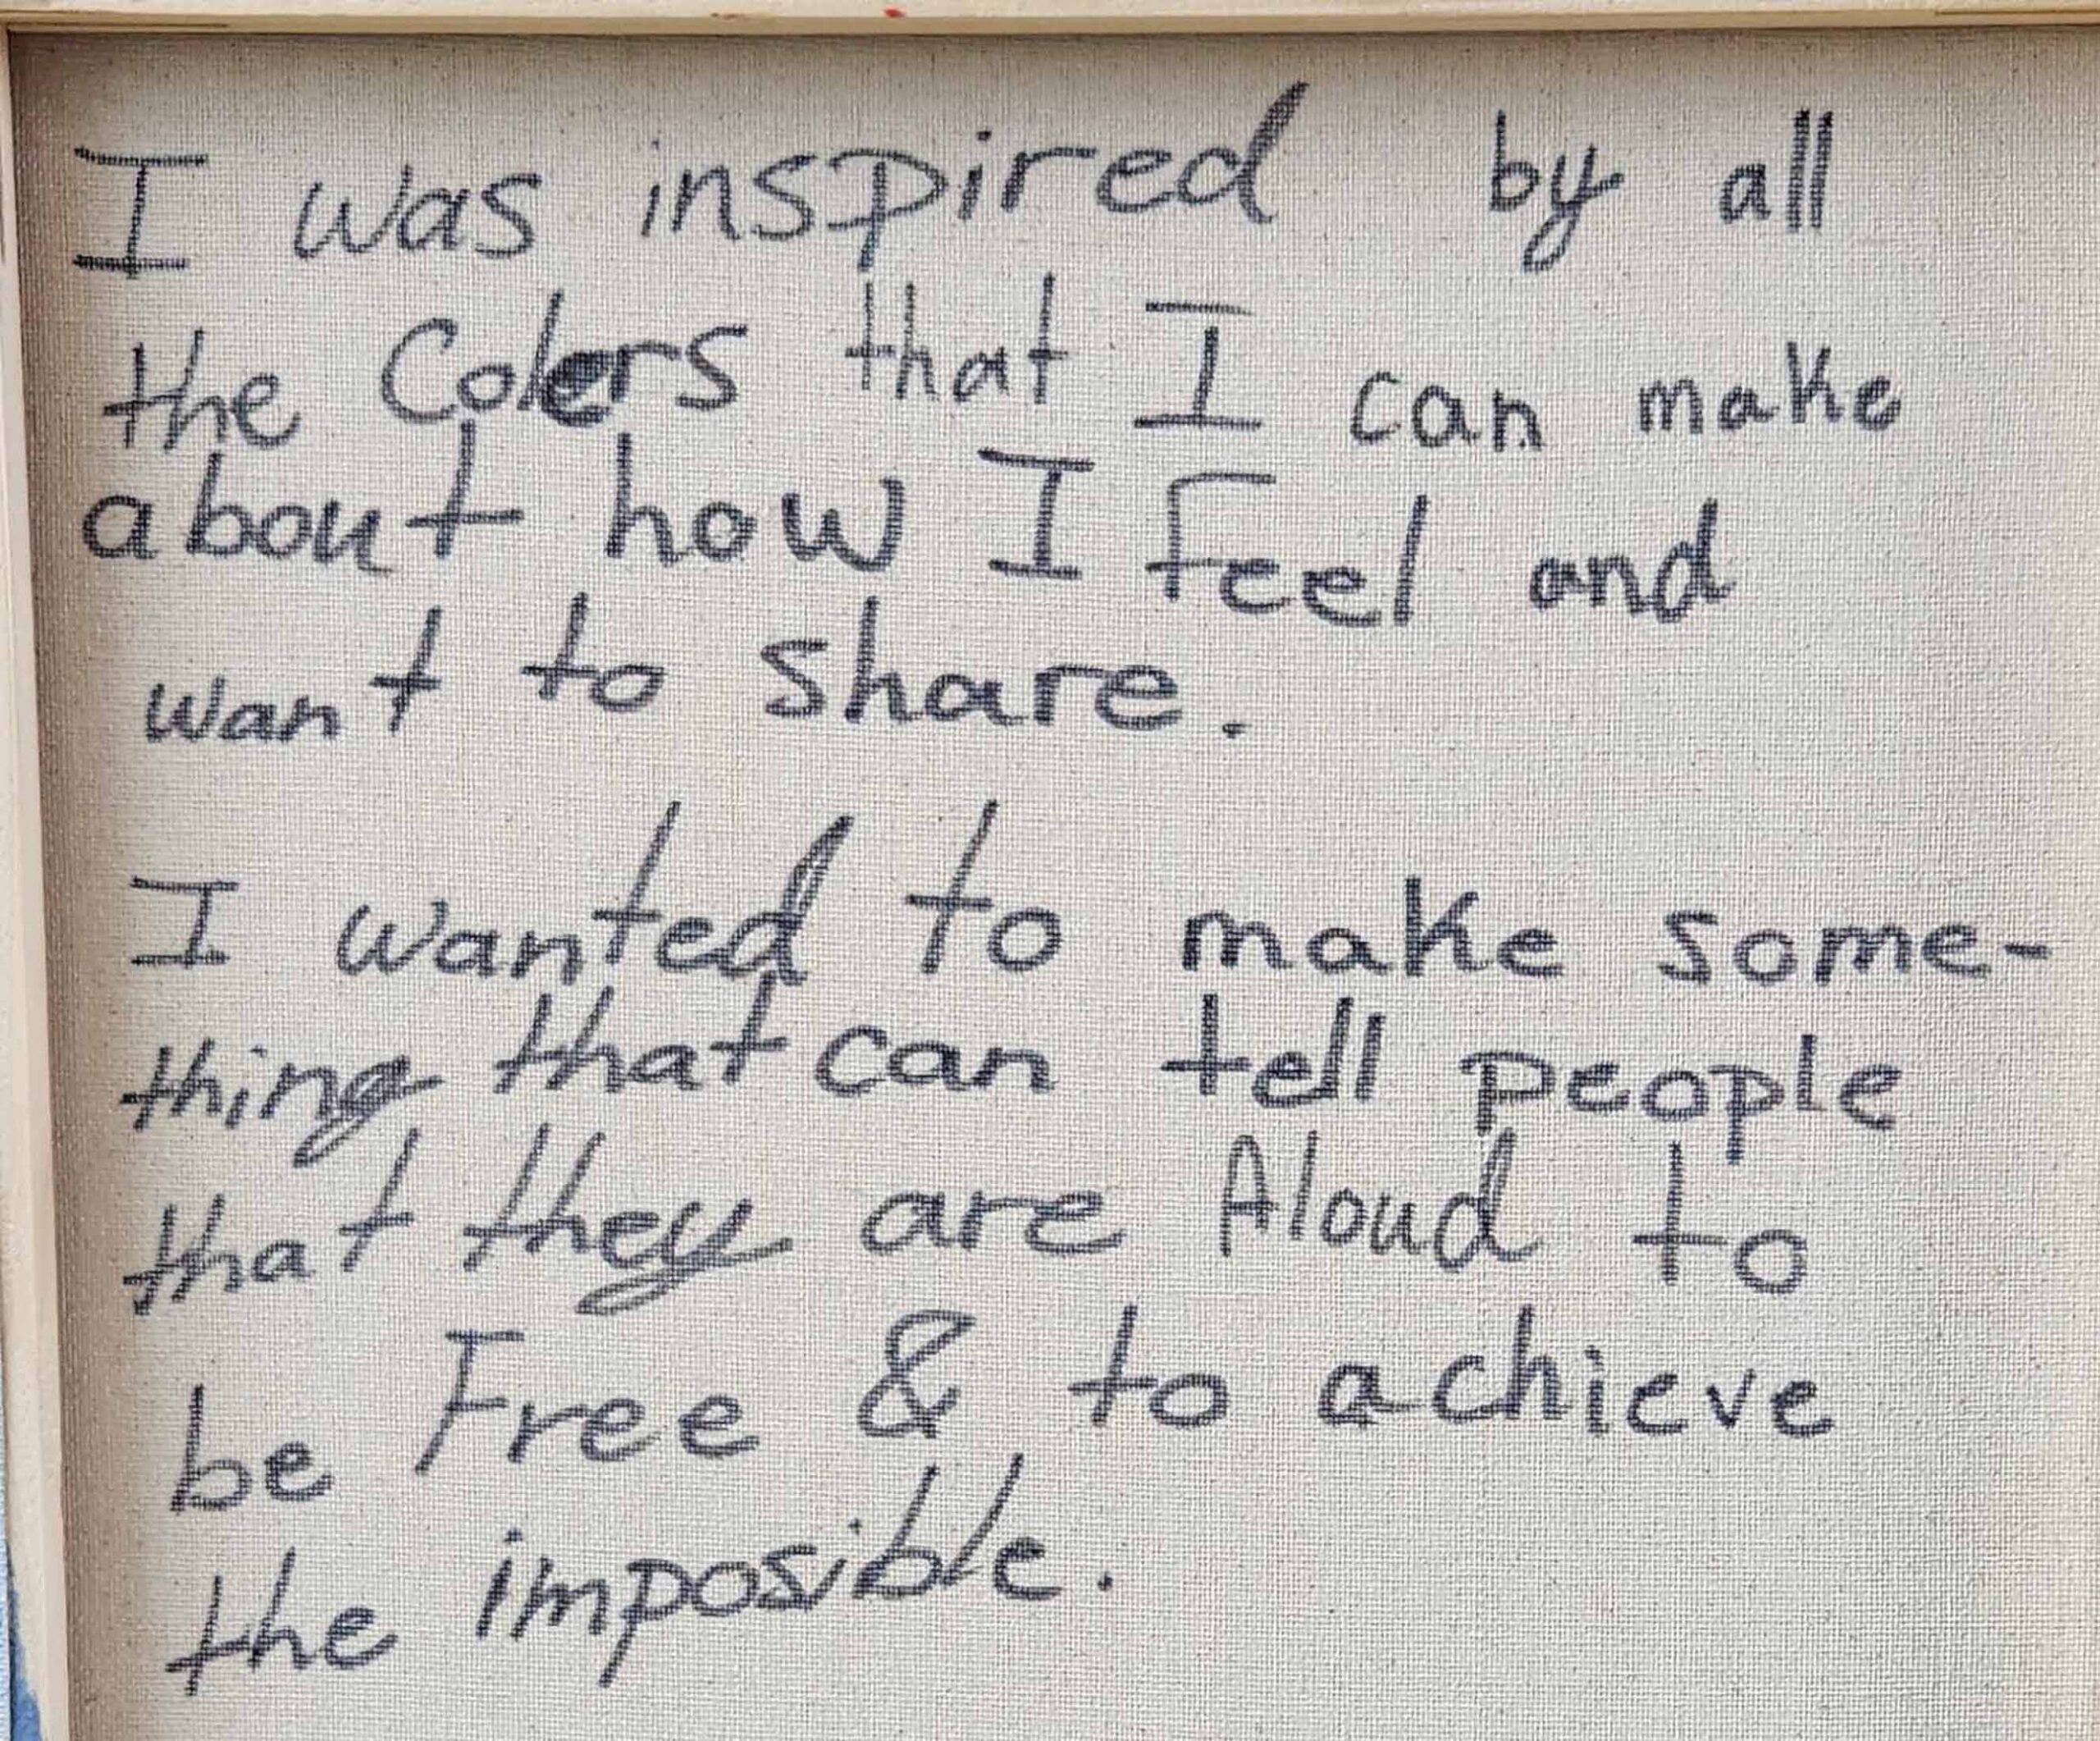 I was inspired by all
the Colers that I can make
about how I Feel and
want to share.
I wanted to make some-
thing that can tell people
that they are Aloud to
be Free & to achieve
the imposible.